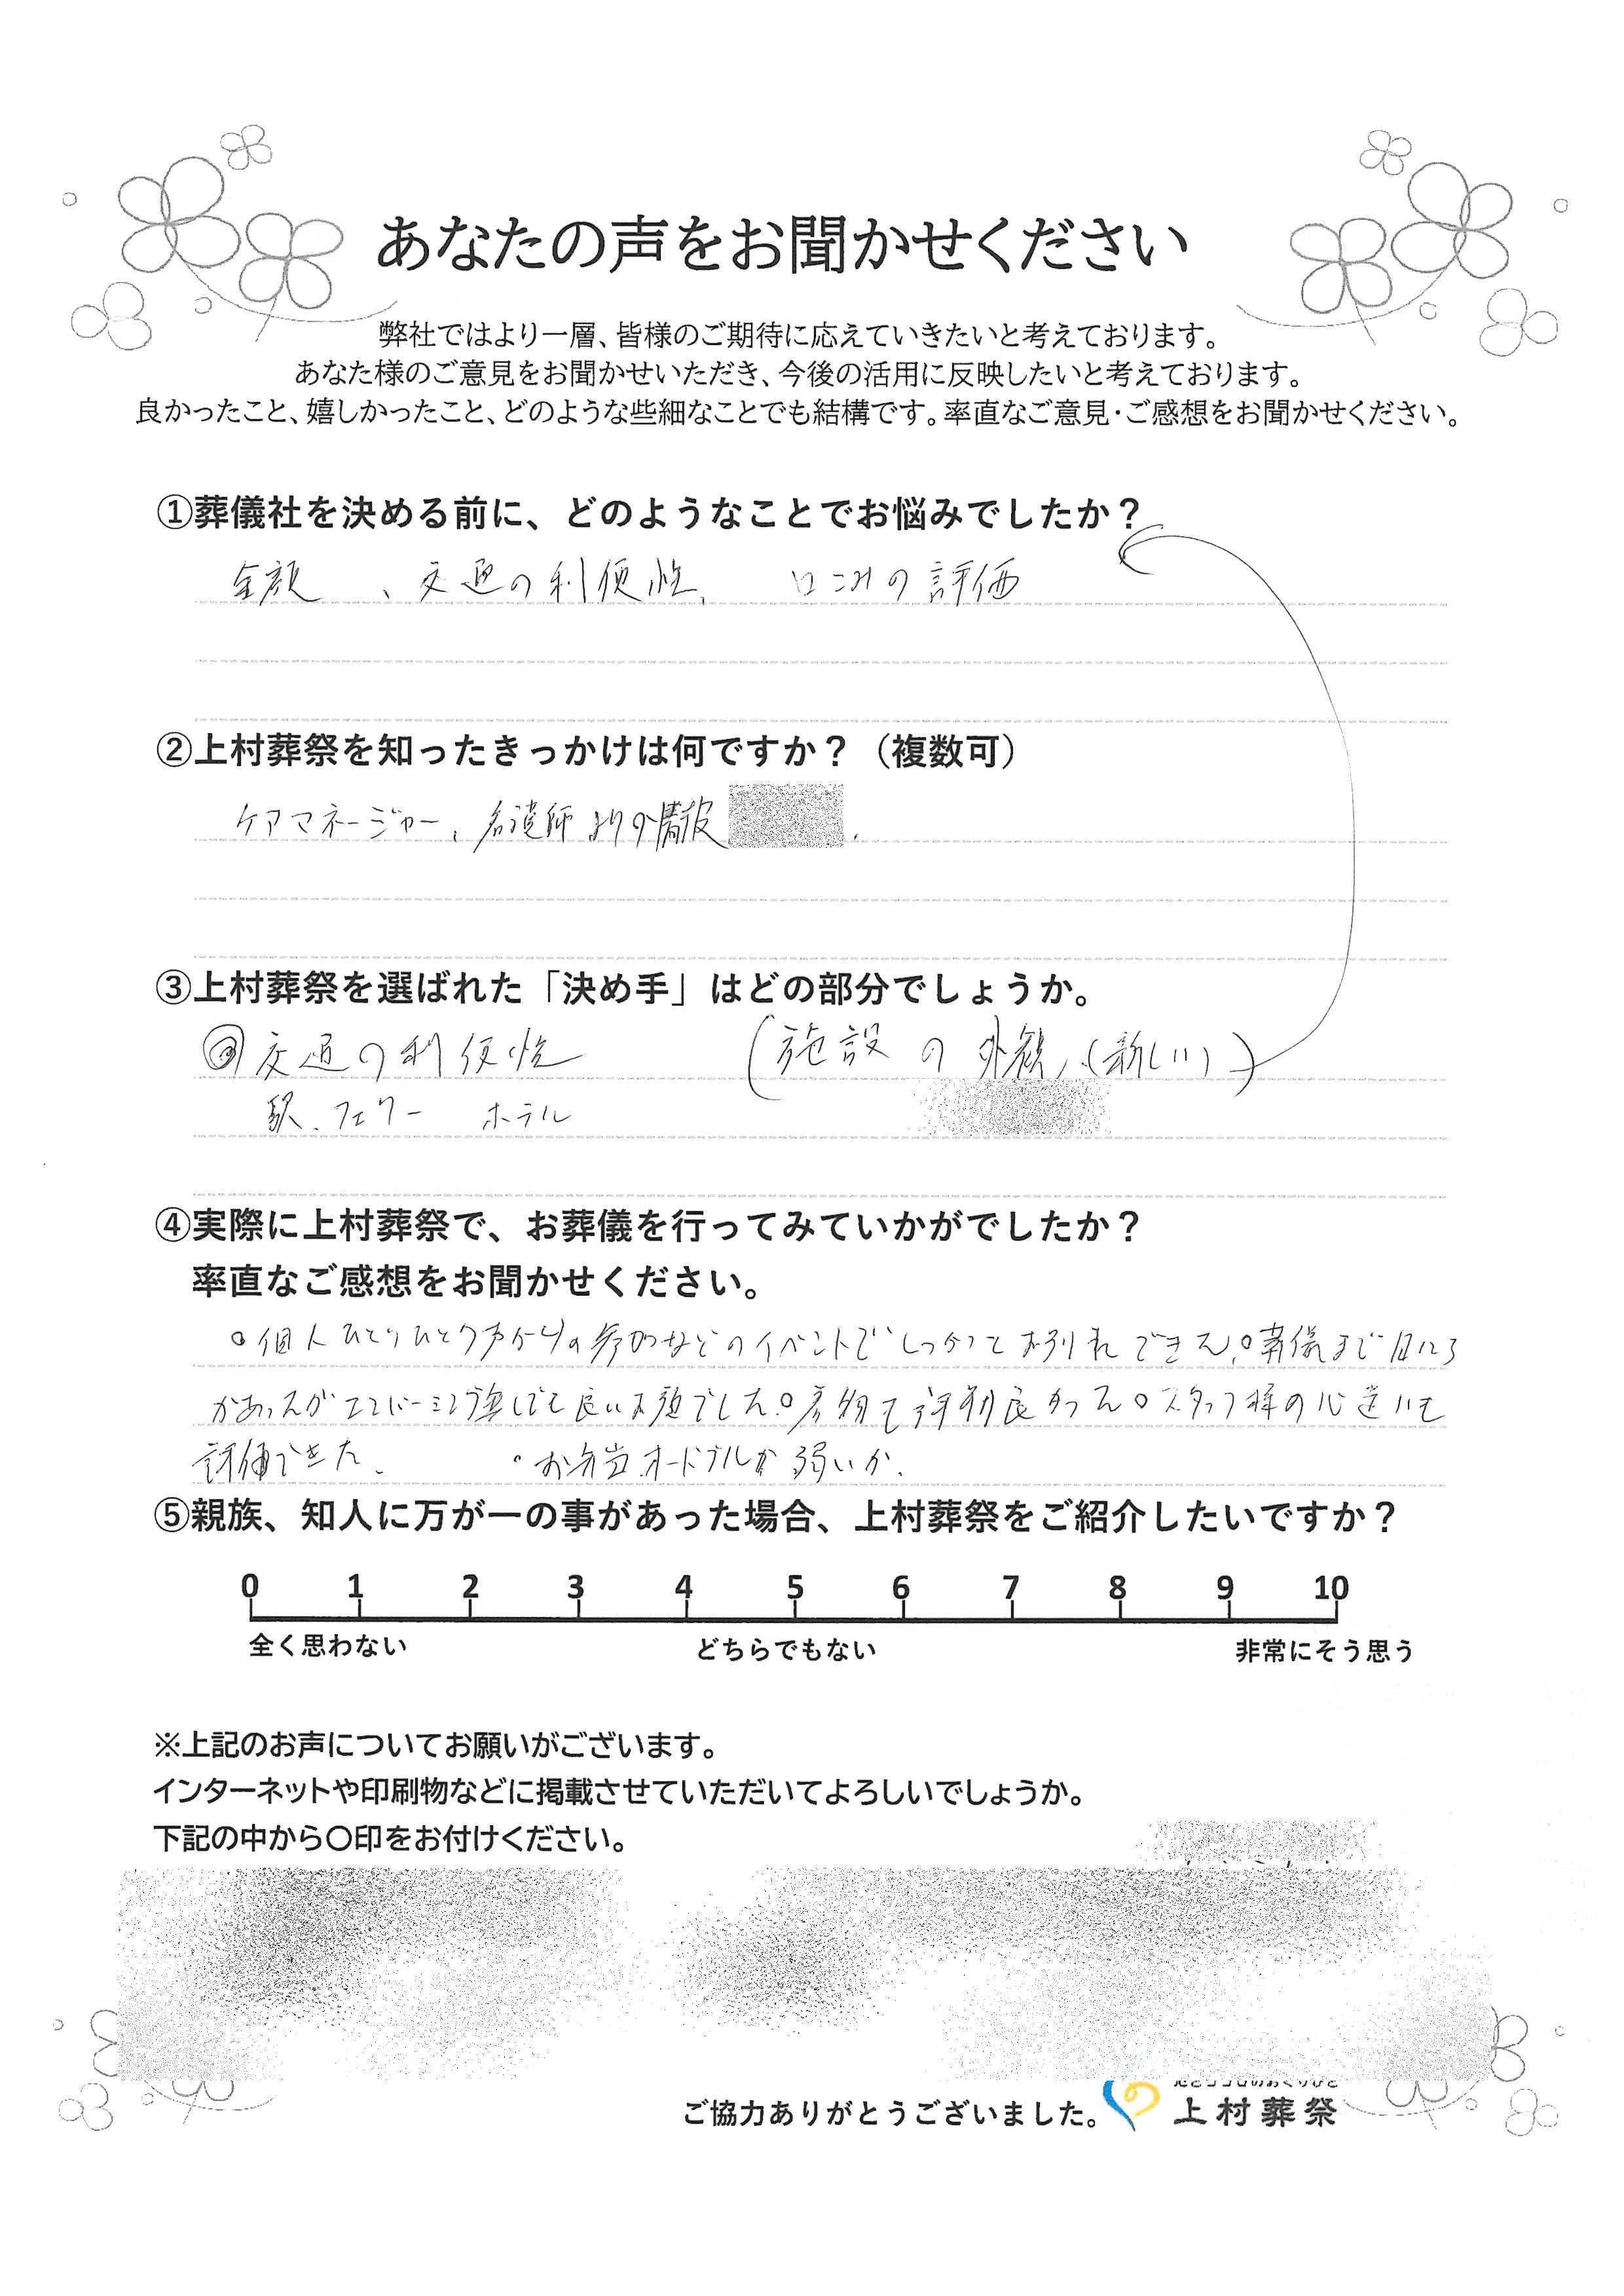 あなたの声をお聞かせください
弊社ではより一層、皆様のご期待に応えていきたいと考えております。
あなた様のご意見をお聞かせいただき、今後の活用に反映したいと考えております。
良かったこと、嬉しかったこと、どのような些細なことでも結構です。率直なご意見・ご感想をお聞かせください。
①葬儀社を決める前に、どのようなことでお悩みでしたか？
金額、交通の利便性、口コミの評価
②上村葬祭を知ったきっかけは何ですか？（複数可）
ケアマネージャー、看護師よりの情報
③上村葬祭を選ばれた「決め手」はどの部分でしょうか。
◎交通の利便性 （施設の外観、（新しい））
駅、フェリー ホテル
④実際に上村葬祭で、お葬儀を行ってみていかがでしたか？
率直なご感想をお聞かせください。
○個人ひとりひとり声かけの参加などのイベントでしっかりとお別れできた。○葬儀まで日にち
があったがエンバーミング無しでも良いお顔でした。○ 評判良かった○スタッフ様の心遣いも
評価できた。 ○お弁当、オードブルが弱いか。
⑤親族、知人に万が一の事があった場合、上村葬祭をご紹介したいですか？
0 1 2 3 4 5 6 7 8 9 10
全く思わない どちらでもない 非常にそう思う
※上記のお声についてお願いがございます。
インターネットや印刷物などに掲載させていただいてよろしいでしょうか。
下記の中から〇印をお付けください。
ご協力ありがとうございました。
上村葬祭